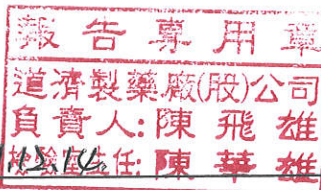 報告專用章
道濟製藥廠(股)公司
負責人:陳飛雄
檢驗主任:陳華雄
112.14.